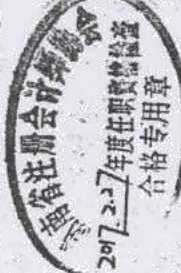 南省注册会计师协会
2017 2.27年度任职资格检查
合格专用章